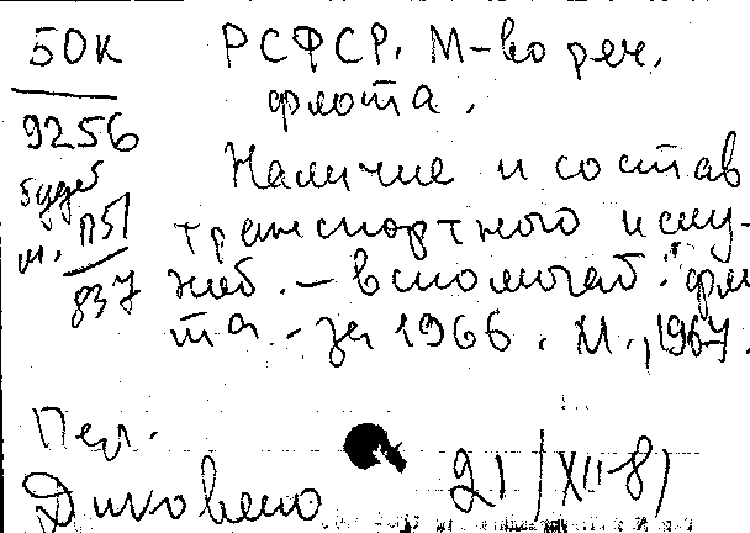 50к
9256
будет
м. П51
837
РСФСР. М-во реч.
флота.
Наличие и состав
транспортного и слу-
жеб.-вспомогат. фло
та - за 1966. М., 1967.
Пер.
21/XII-81